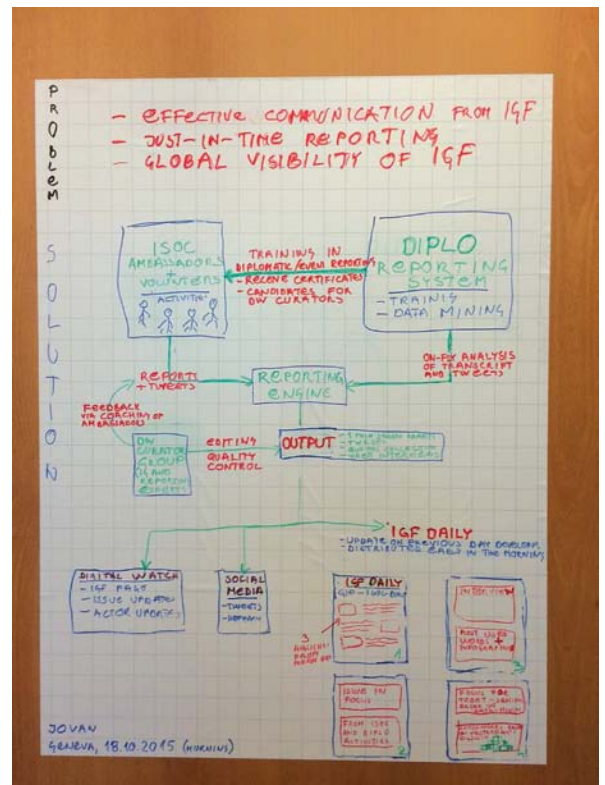 PROBLEM
- EFFECTIVE COMMUNICATION FROM IGF
- JUST-IN-TIME REPORTING
- GLOBAL VISIBILITY OF IGF
SOLUTION
ISOC
AMBASSADORS
+
VOLUNTEERS
ACTIVITIES
TRAINING IN
DIPLOMATIC/EVENT REPORTING
- RECEIVE CERTIFICATES
- CANDIDATES FOR
DW CURATORS
DIPLO
REPORTING
SYSTEM
- TRAINING
- DATA MINING
REPORTS
+ TWEETS
REPORTING
ENGINE
ON-FLY ANALYSIS
OF TRANSCRIPT
AND TWEETS
FEEDBACK
VIA COACHING OF
AMBASSADORS
DW
CURATOR
GROUP
AND REPORTING
EXPERTS
EDITING
QUALITY
CONTROL
OUTPUT
IGF DAILY
- UPDATE ON PREVIOUS DAY DEVELOP.
- DISTRIBUTED EARLY IN THE MORNING
DIGITAL WATCH
- IGF PAGE
- ISSUE UPDATES
- ACTOR UPDATES
SOCIAL
MEDIA
- TWEETS
IGF DAILY
3
1
INTERVIEW
MOST USED
WORDS +
INFOGRAPHIC
3
ISSUE IN
FOCUS
FROM ISOC
AND DIPLO
ACTIVITIES
2
FOCUS FOR
TODAY
JOVAN
GENEVA, 18.10.2015 (MORNING)